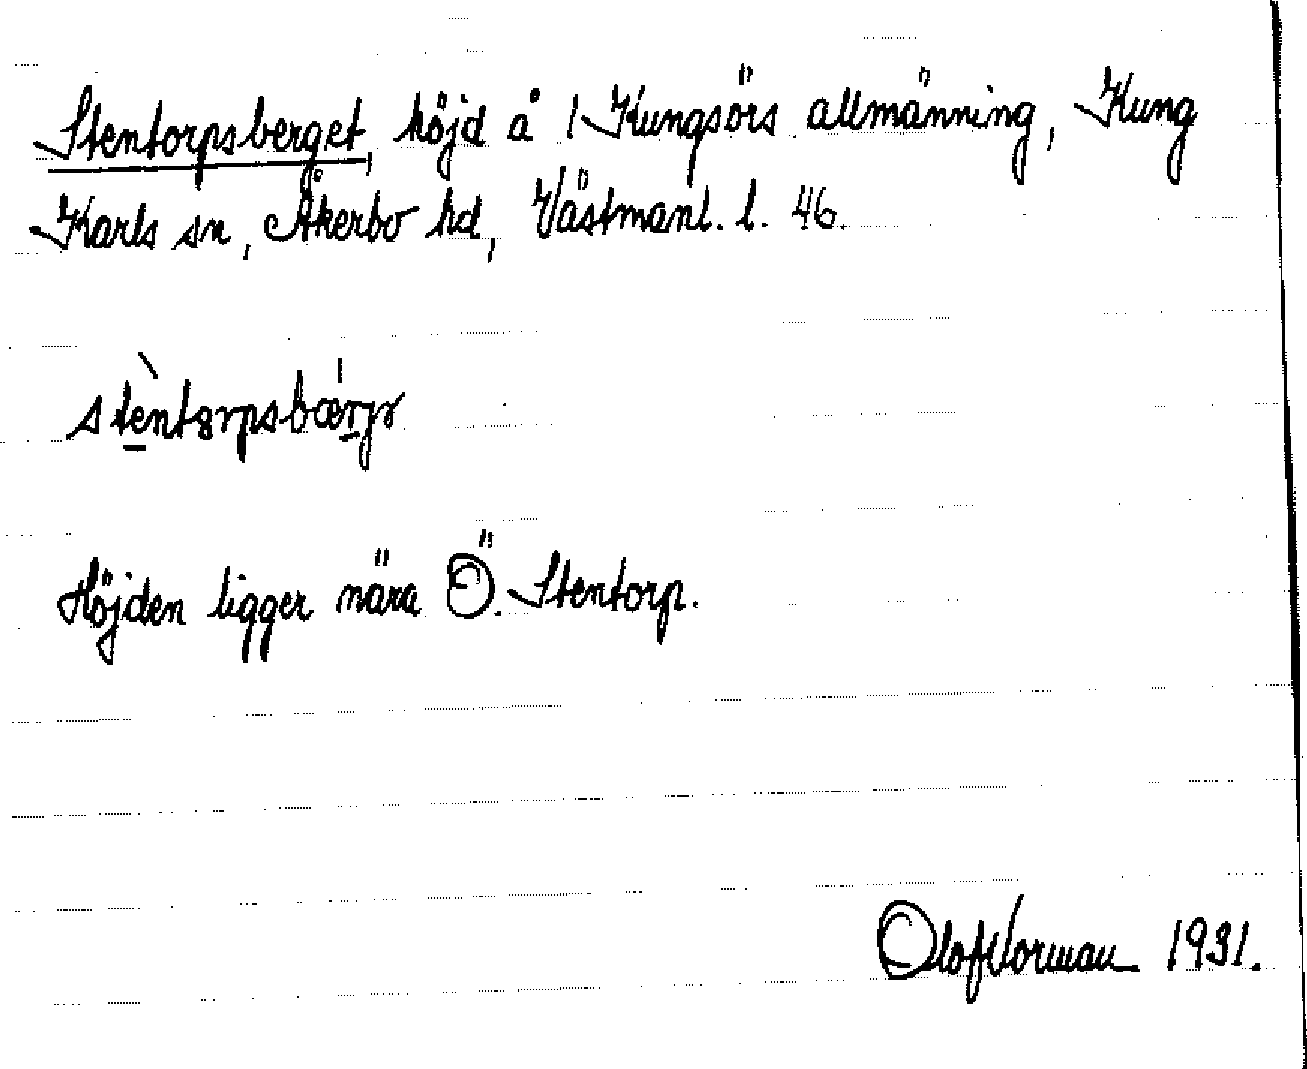 Stentorpsberget, höjd å 1 Kungsörs allmänning, Kung
Karls sn, Åkerbo hd, Västmanl. l. 46.
stèntorpsbærjə
Höjden ligger nära Ö. Stentorp.
Olof Norman 1931.